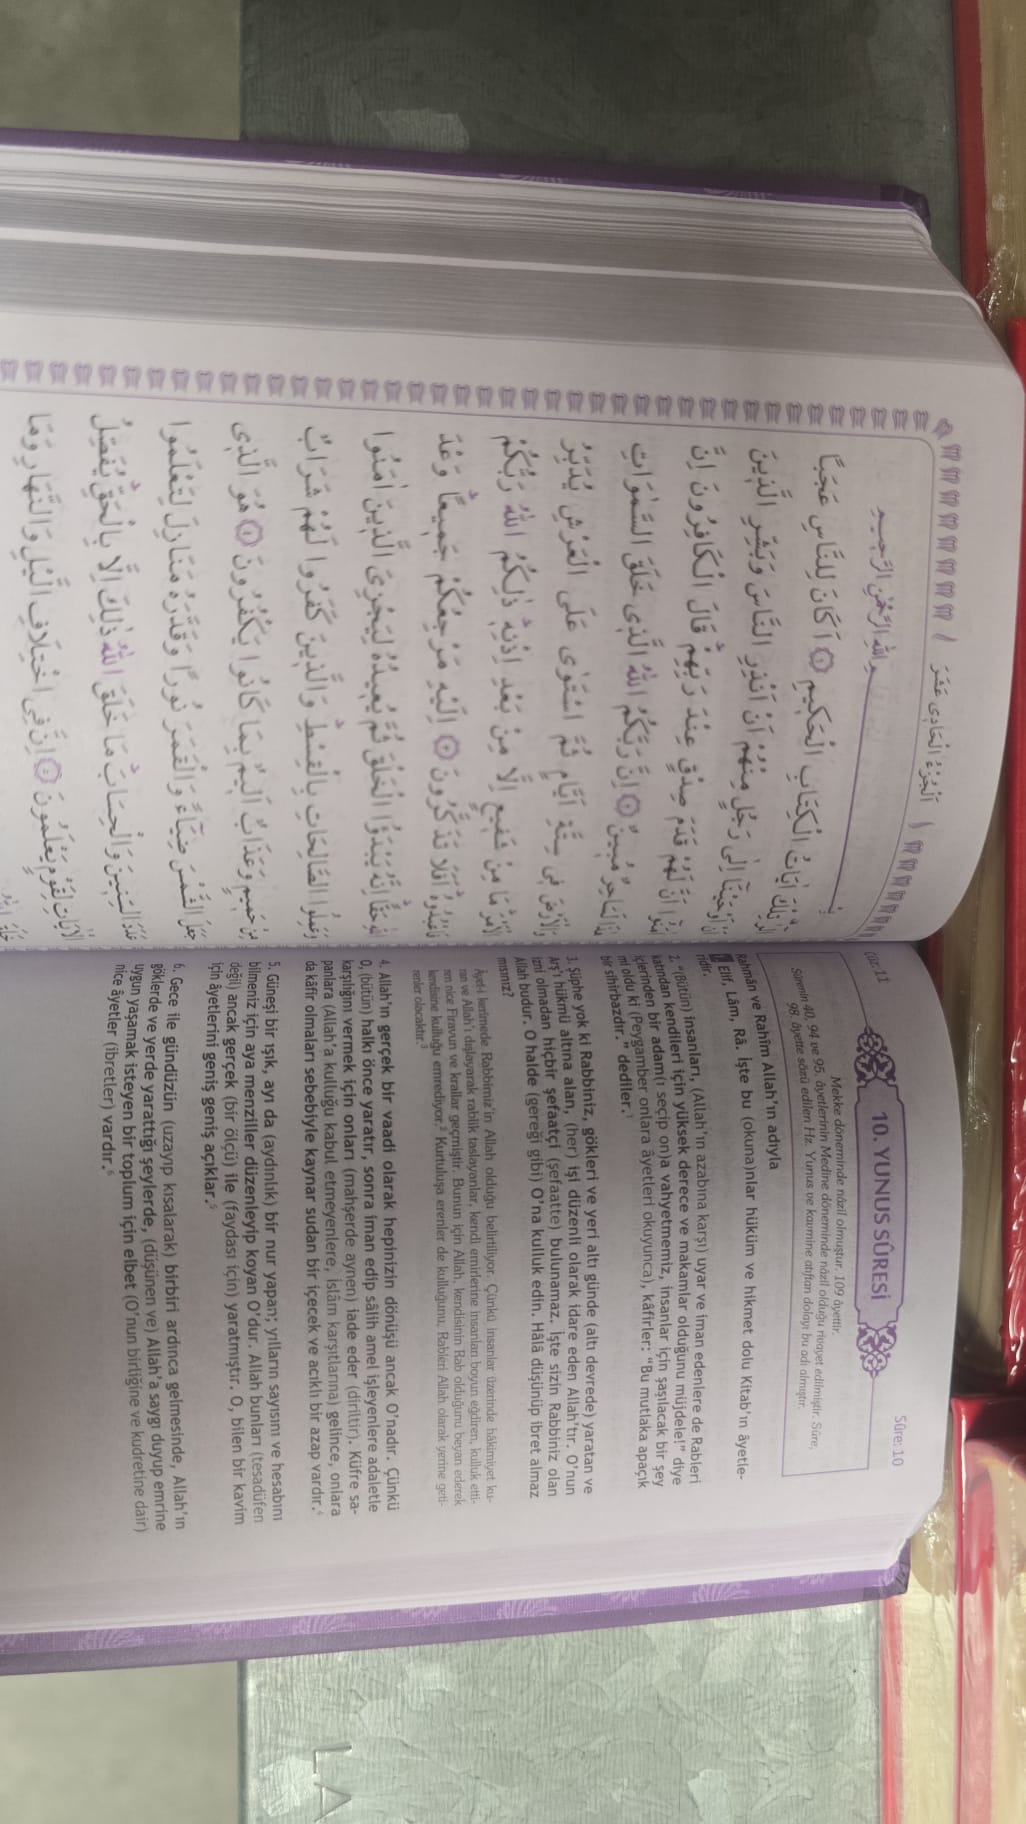 اَلْجُزْءُ الْحَادِى عَشَرَ
ـمِ اللهِ الرَّحْمٰنِ الرَّحِيمِ
الٓرٰ تِلْكَ اٰيَاتُ الْكِتَابِ الْحَكِيمِ ۞ اَكَانَ لِلنَّاسِ عَجَبًا
اَنْ اَوْحَيْنَٓا اِلٰى رَجُلٍ مِنْهُمْ اَنْ اَنْذِرِ النَّاسَ وَبَشِّرِ الَّذِينَ
اٰمَنُٓوا اَنَّ لَهُمْ قَدَمَ صِدْقٍ عِنْدَ رَبِّهِمْ قَالَ الْكَافِرُونَ اِنَّ
هٰذَا لَسَاحِرٌ مُبِينٌ ۞ اِنَّ رَبَّكُمُ اللهُ الَّذِى خَلَقَ السَّمٰوَاتِ
وَالْاَرْضَ فِى سِتَّةِ اَيَّامٍ ثُمَّ اسْتَوٰى عَلَى الْعَرْشِ يُدَبِّرُ
الْاَمْرَ مَا مِنْ شَفِيعٍ اِلَّا مِنْ بَعْدِ اِذْنِهِ ذٰلِكُمُ اللهُ رَبُّكُمْ
فَاعْبُدُوهُ اَفَلَا تَذَكَّرُونَ ۞ اِلَيْهِ مَرْجِعُكُمْ جَمِيعًا وَعْدَ
اللهِ حَقًّا اِنَّهُ يَبْدَؤُا الْخَلْقَ ثُمَّ يُعِيدُهُ لِيَجْزِىَ الَّذِينَ اٰمَنُوا
وَعَمِلُوا الصَّالِحَاتِ بِالْقِسْطِ وَالَّذِينَ كَفَرُوا لَهُمْ شَرَابٌ
مِنْ حَمِيمٍ وَعَذَابٌ اَلِيمٌ بِمَا كَانُوا يَكْفُرُونَ ۞ هُوَ الَّذِى
جَعَلَ الشَّمْسَ ضِيَٓاءً وَالْقَمَرَ نُورًا وَقَدَّرَهُ مَنَازِلَ لِتَعْلَمُوا
عَدَدَ السِّنِينَ وَالْحِسَابَ مَا خَلَقَ اللهُ ذٰلِكَ اِلَّا بِالْحَقِّ يُفَصِّلُ
الْاٰيَاتِ لِقَوْمٍ يَعْلَمُونَ ۞ اِنَّ فِى اخْتِلَافِ الَّيْلِ وَالنَّهَارِ وَمَا
Cüz: 11
Sûre:10
10. YUNUS SÛRESİ
Mekke döneminde nâzil olmuştur. 109 âyettir.
Sûrenin 40, 94 ve 95. âyetlerinin Medine döneminde nâzil olduğu rivayet edilmiştir. Sûre,
98. âyette sözü edilen Hz. Yunus ve kavmine atıftan dolayı bu adı almıştır.
Rahmân ve Rahîm Allah'ın adıyla
1. Elif, Lâm, Râ. İşte bu (okuna)nlar hüküm ve hikmet dolu Kitab'ın âyetle-
ridir.
2. "(Bütün) insanları, (Allah'ın azabına karşı) uyar ve iman edenlere de Rableri
katından kendileri için yüksek derece ve makamlar olduğunu müjdele!" diye
içlerinden bir adam(ı seçip on)a vahyetmemiz, insanlar için şaşılacak bir şey
mi oldu ki (Peygamber onlara âyetleri okuyunca), kâfirler: "Bu mutlaka apaçık
bir sihirbazdır." dediler.¹
3. Şüphe yok ki Rabbiniz, gökleri ve yeri altı günde (altı devrede) yaratan ve
Arş'ı hükmü altına alan, (her) işi düzenli olarak idare eden Allah'tır. O'nun
izni olmadan hiçbir şefaatçi (şefaatte) bulunamaz. İşte sizin Rabbiniz olan
Allah budur. O halde (gereği gibi) O'na kulluk edin. Hâlâ düşünüp ibret almaz
mısınız?
Âyet-i kerimede Rabbimiz'in Allah olduğu belirtiliyor. Çünkü insanlar üzerinde hâkimiyet ku-
ran ve Allah'ı dışlayarak rablik taslayanlar, kendi emirlerine insanları boyun eğdiren, kulluk etti-
ren nice Firavun ve krallar geçmiştir. Bunun için Allah, kendisinin Rab olduğunu beyan ederek
kendisine kulluğu emrediyor.² Kurtuluşa erenler de kulluğunu, Rableri Allah olarak yerine geti-
renler olacaktır.³
4. Allah'ın gerçek bir vaadi olarak hepinizin dönüşü ancak O'nadır. Çünkü
O, (bütün) halkı önce yaratır, sonra iman edip sâlih amel işleyenlere adaletle
karşılığını vermek için onları (mahşerde aynen) iade eder (diriltir). Küfre sa-
panlara (Allah'a kulluğu kabul etmeyenlere, İslâm karşıtlarına) gelince, onlara
da kâfir olmaları sebebiyle kaynar sudan bir içecek ve acıklı bir azap vardır.⁴
5. Güneşi bir ışık, ayı da (aydınlık) bir nur yapan; yılların sayısını ve hesabını
bilmeniz için aya menziller düzenleyip koyan O'dur. Allah bunları (tesadüfen
değil) ancak gerçek (bir ölçü) ile (faydası için) yaratmıştır. O, bilen bir kavim
için âyetlerini geniş geniş açıklar.⁵
6. Gece ile gündüzün (uzayıp kısalarak) birbiri ardınca gelmesinde, Allah'ın
göklerde ve yerde yarattığı şeylerde, (düşünen ve) Allah'a saygı duyup emrine
uygun yaşamak isteyen bir toplum için elbet (O'nun birliğine ve kudretine dair)
nice âyetler (ibretler) vardır.⁶
LA